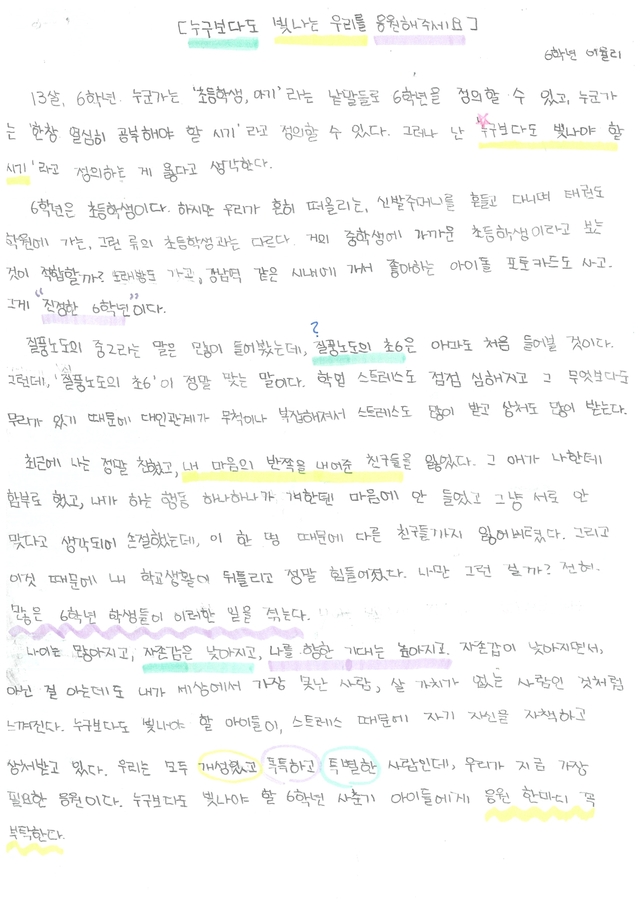 [누구보다도 빛나는 우리를 응원해주세요]
6학년 이율리
13살, 6학년. 누군가는 '초등학생, 아기'라는 낱말들로 6학년을 정의할 수 있고, 누군가
는 '한창 열심히 공부해야 할 시기'라고 정의할 수 있다. 그러나 난 '누구보다도 빛나야 할
시기'라고 정의하는 게 옳다고 생각한다.
6학년은 초등학생이다. 하지만 우리가 흔히 떠올리는, 신발주머니를 흔들고 다니며 태권도
학원에 가는, 그런 류의 초등학생과는 다르다. 거의 중학생에 가까운 초등학생이라고 보는
것이 적합할까? 노래방도 가고, 강남역 같은 시내에 가서 좋아하는 아이돌 포토카드도 사고.
그게 "진정한 6학년"이다.
질풍노도의 중2라는 말은 많이 들어봤는데, 질풍노도의 초6은 아마도 처음 들어볼 것이다.
그런데, '질풍노도의 초6'이 정말 맞는 말이다. 학업 스트레스도 점점 심해지고 그 무엇보다도
무리가 있기 때문에 대인관계가 무척이나 복잡해져서 스트레스도 많이 받고 상처도 많이 받는다.
최근에 나는 정말 친했고, 내 마음의 반쪽을 내어준 친구들을 잃었다. 그 애가 나한테
함부로 했고, 내가 하는 행동 하나하나가 걔한텐 마음에 안 들었고 그냥 서로 안
맞다고 생각되어 손절했는데, 이 한 명 때문에 다른 친구들까지 잃어버렸다. 그리고
이것 때문에 내 학교생활에 뒤틀리고 정말 힘들어졌다. 나만 그런 걸까? 전혀.
많은 6학년 학생들이 이러한 일을 겪는다.
나이는 많아지고, 자존감은 낮아지고, 나를 향한 기대는 높아지고. 자존감이 낮아지면서,
아닌 걸 아는데도 내가 세상에서 가장 못난 사람, 살 가치가 없는 사람인 것처럼
느껴진다. 누구보다도 빛나야 할 아이들이, 스트레스 때문에 자기 자신을 자책하고
상처받고 있다. 우리는 모두 개성있고 독특하고 특별한 사람인데, 우리가 지금 가장
필요한 응원이다. 누구보다도 빛나야 할 6학년 사춘기 아이들에게 응원 한마디 꼭
부탁한다.